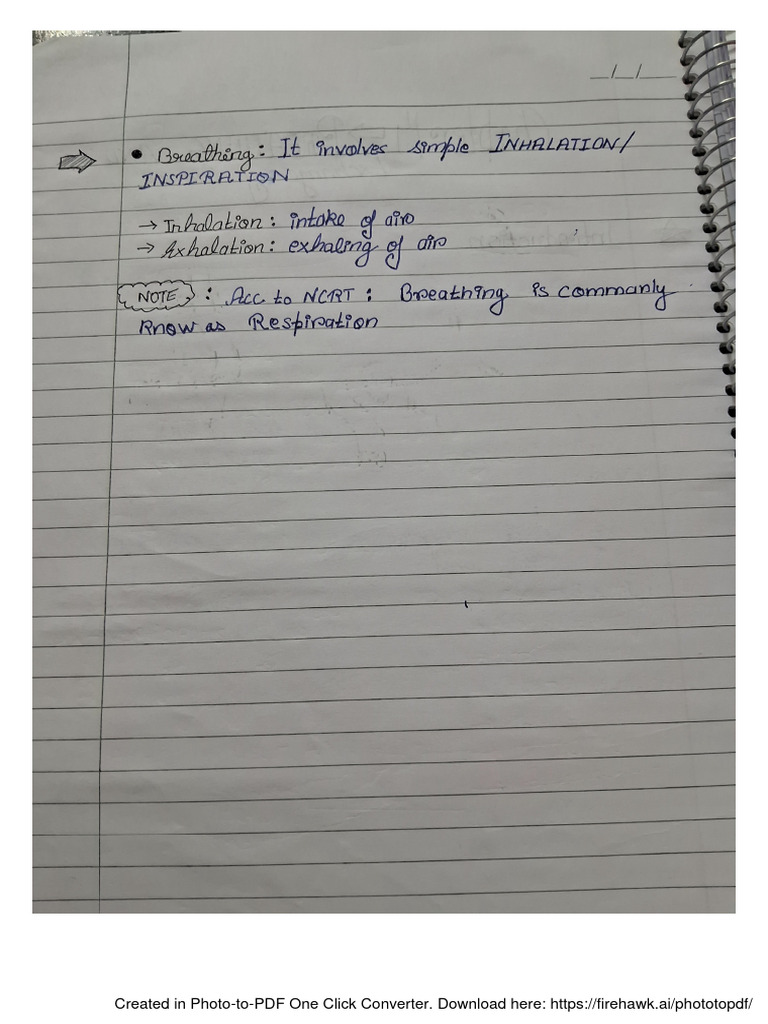 _/_/_
• Breathing: It involves simple INHALATION/
INSPIRATION
→ Inhalation: intake of air
→ Exhalation: exhaling of air
NOTE : Acc to NCRT : Breathing is commanly
know as Respiration
Created in Photo-to-PDF One Click Converter. Download here: https://firehawk.ai/phototopdf/